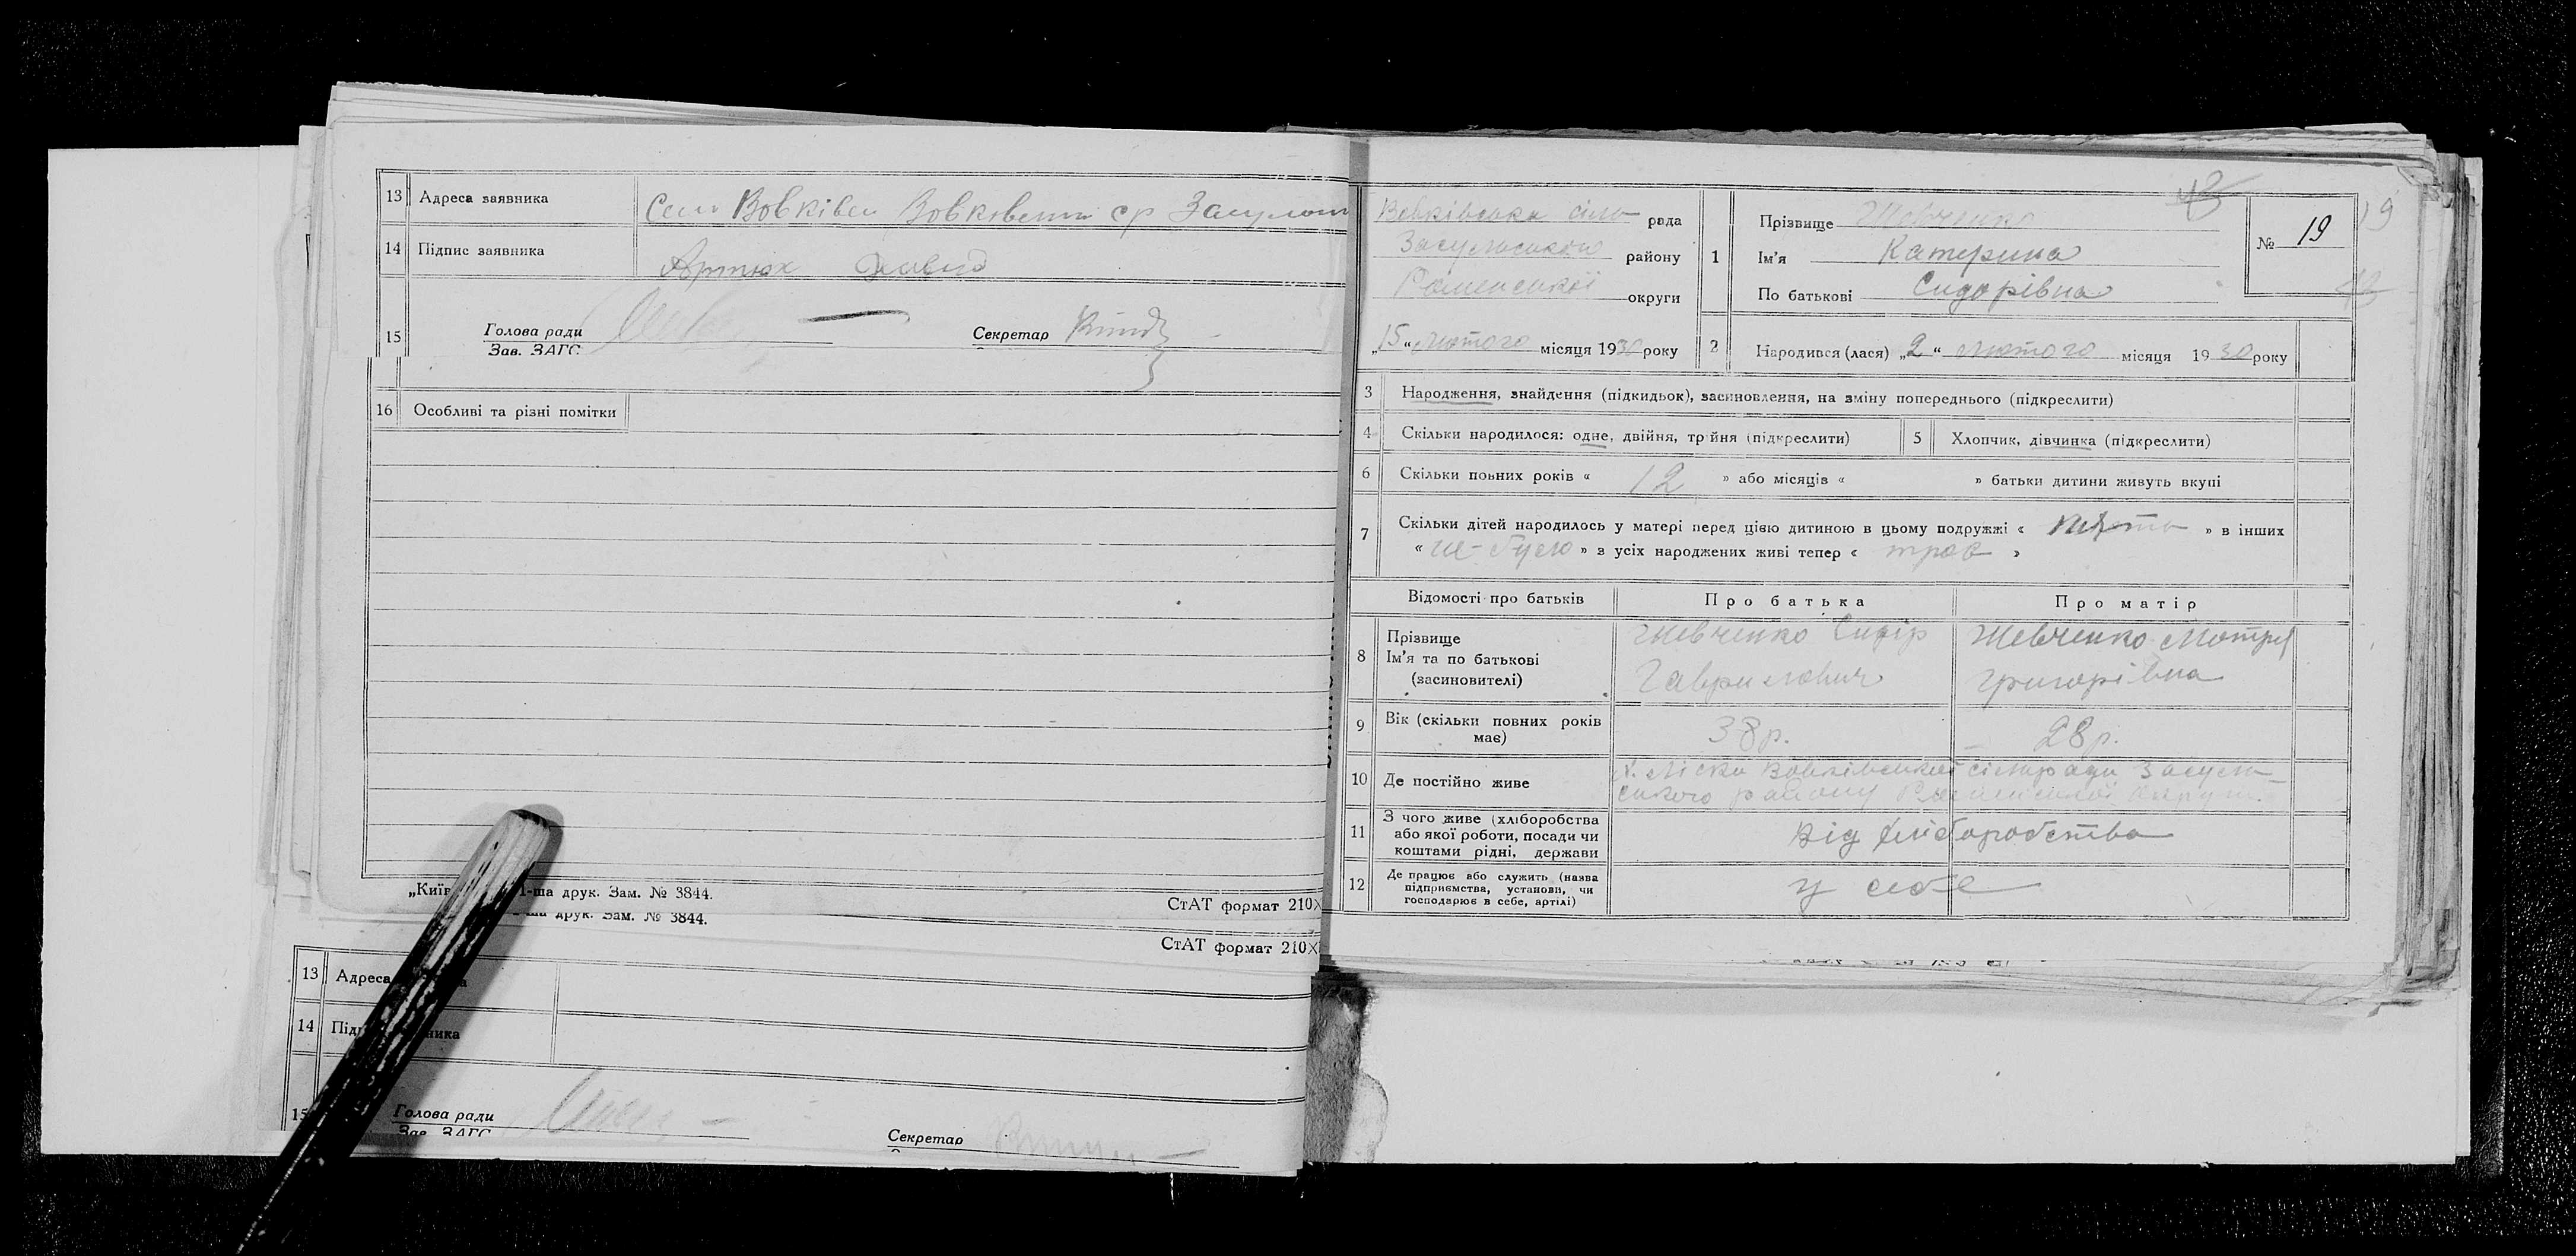 13 Адреса заявника Село Вовківці Вовковецької ср
14 Підпис заявника Артюх
15 Голова ради Секретар
Зав. ЗАГС
16 Особливі та різні помітки
„Київ 1-ша друк. Зам. № 3844.
СтАТ формат 210×
друк. Зам. № 3844.
СтАТ формат 210×
13 Адреса
14
15 Голова ради
Зав. ЗАГС
Секретар
Вовківська сіль рада
Засульського району
Роменської округи
„15“ лютого місяця 1930 року
1 Прізвище Шевченко
Ім'я Катерина
По батькові Сидорівна
№ 19
19
2 Народився (лася) „2“ лютого місяця 1930 року
3 Народження, знайдення (підкидьок), засиновлення, на зміну попереднього (підкреслити)
4 Скільки народилося: одне, двійня, трійня (підкреслити) 5 Хлопчик, дівчинка (підкреслити)
6 Скільки повних років « 12 » або місяців « » батьки дитини живуть вкупі
7 Скільки дітей народилось у матері перед цією дитиною в цьому подружжі « » в інших
« не було » з усіх народжених живі тепер « троє »
Відомості про батьків Про батька Про матір
8 Прізвище Ім'я та по батькові (засиновителі)
Шевченко Сидір Гаврилович
Шевченко Мотря Григорівна
9 Вік (скільки повних років має) 38 р. 28 р.
10 Де постійно живе х. Ліски Вовківської сільради Засуль-
ського району Роменської округи
11 З чого живе (хліборобства або якої роботи, посади чи коштами рідні, держави Від хліборобства
12 Де працює або служить (назва підприємства, установи, чи господарює в себе, артілі) у себе